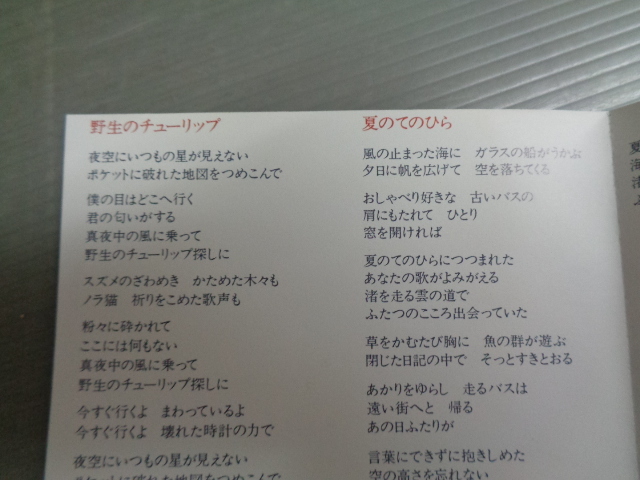 野生のチューリップ
夜空にいつもの星が見えない
ポケットに破れた地図をつめこんで
僕の目はどこへ行く
君の匂いがする
真夜中の風に乗って
野生のチューリップ探しに
スズメのざわめき かためた木々も
ノラ猫 祈りをこめた歌声も
粉々に砕かれて
ここには何もない
真夜中の風に乗って
野生のチューリップ探しに
今すぐ行くよ まわっているよ
今すぐ行くよ 壊れた時計の力で
夜空にいつもの星が見えない
ポケットに破れた地図をつめこんで
夏のてのひら
風の止まった海に ガラスの船がうかぶ
夕日に帆を広げて 空を落ちてくる
おしゃべり好きな 古いバスの
肩にもたれて ひとり
窓を開ければ
夏のてのひらにつつまれた
あなたの歌がよみがえる
渚を走る雲の道で
ふたつのこころ出会っていた
草をかむたび胸に 魚の群が遊ぶ
閉じた日記の中で そっとすきとおる
あかりをゆらし 走るバスは
遠い街へと 帰る
あの日ふたりが
言葉にできずに抱きしめた
空の高さを忘れない